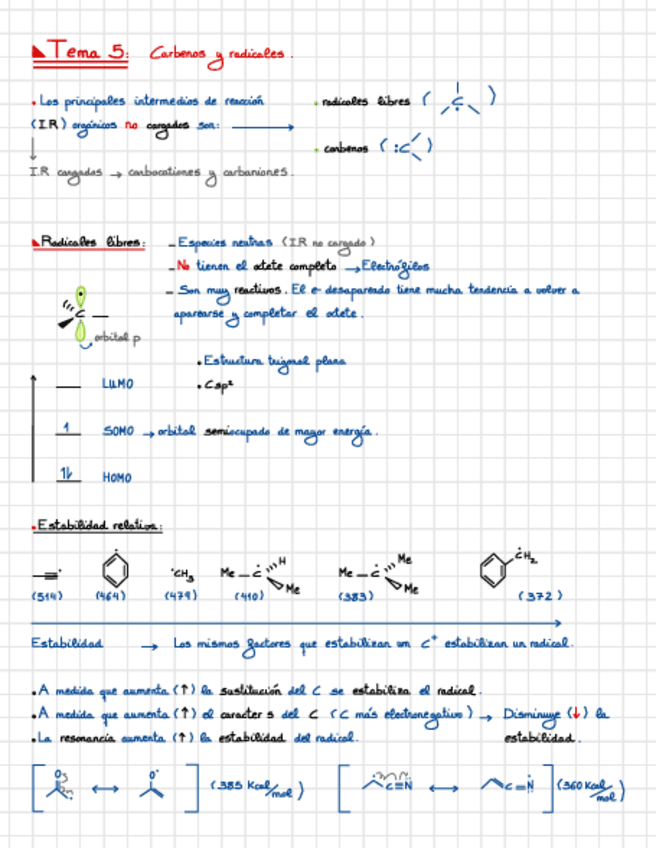 Tema 5: Carbenos y radicales.
• Los principales intermedios de reacción
(I.R) orgánicos no cargados son: →
• radicales libres ( C )
• carbenos ( :C )
I.R cargados → carbocationes y carbaniones.
Radicales libres:
- Especies neutras (I.R no cargado)
- No tienen el octete completo → Electrófilos
- Son muy reactivos. El e- desapareado tiene mucha tendencia a volver a
aparearse y completar el octete.
C
orbital p
• Estructura trigonal plana
• Csp²
LUMO
1 SOMO → orbital semiocupado de mayor energía.
1↓ HOMO
• Estabilidad relativa:
•CH₃ Me - C H Me Me - C Me Me CH₂
(514) (464) (479) (410) (383) (372)
Estabilidad → Los mismos factores que estabilizan un C⁺ estabilizan un radical.
• A medida que aumenta (↑) la sustitución del C se estabiliza el radical.
• A medida que aumenta (↑) el caracter s del C (C más electronegativo) → Disminuye (↓) la
estabilidad.
• La resonancia aumenta (↑) la estabilidad del radical.
[ O ↔ O ] (385 Kcal/mol) [ C≡N ↔ C=N ] (360 Kcal/mol)